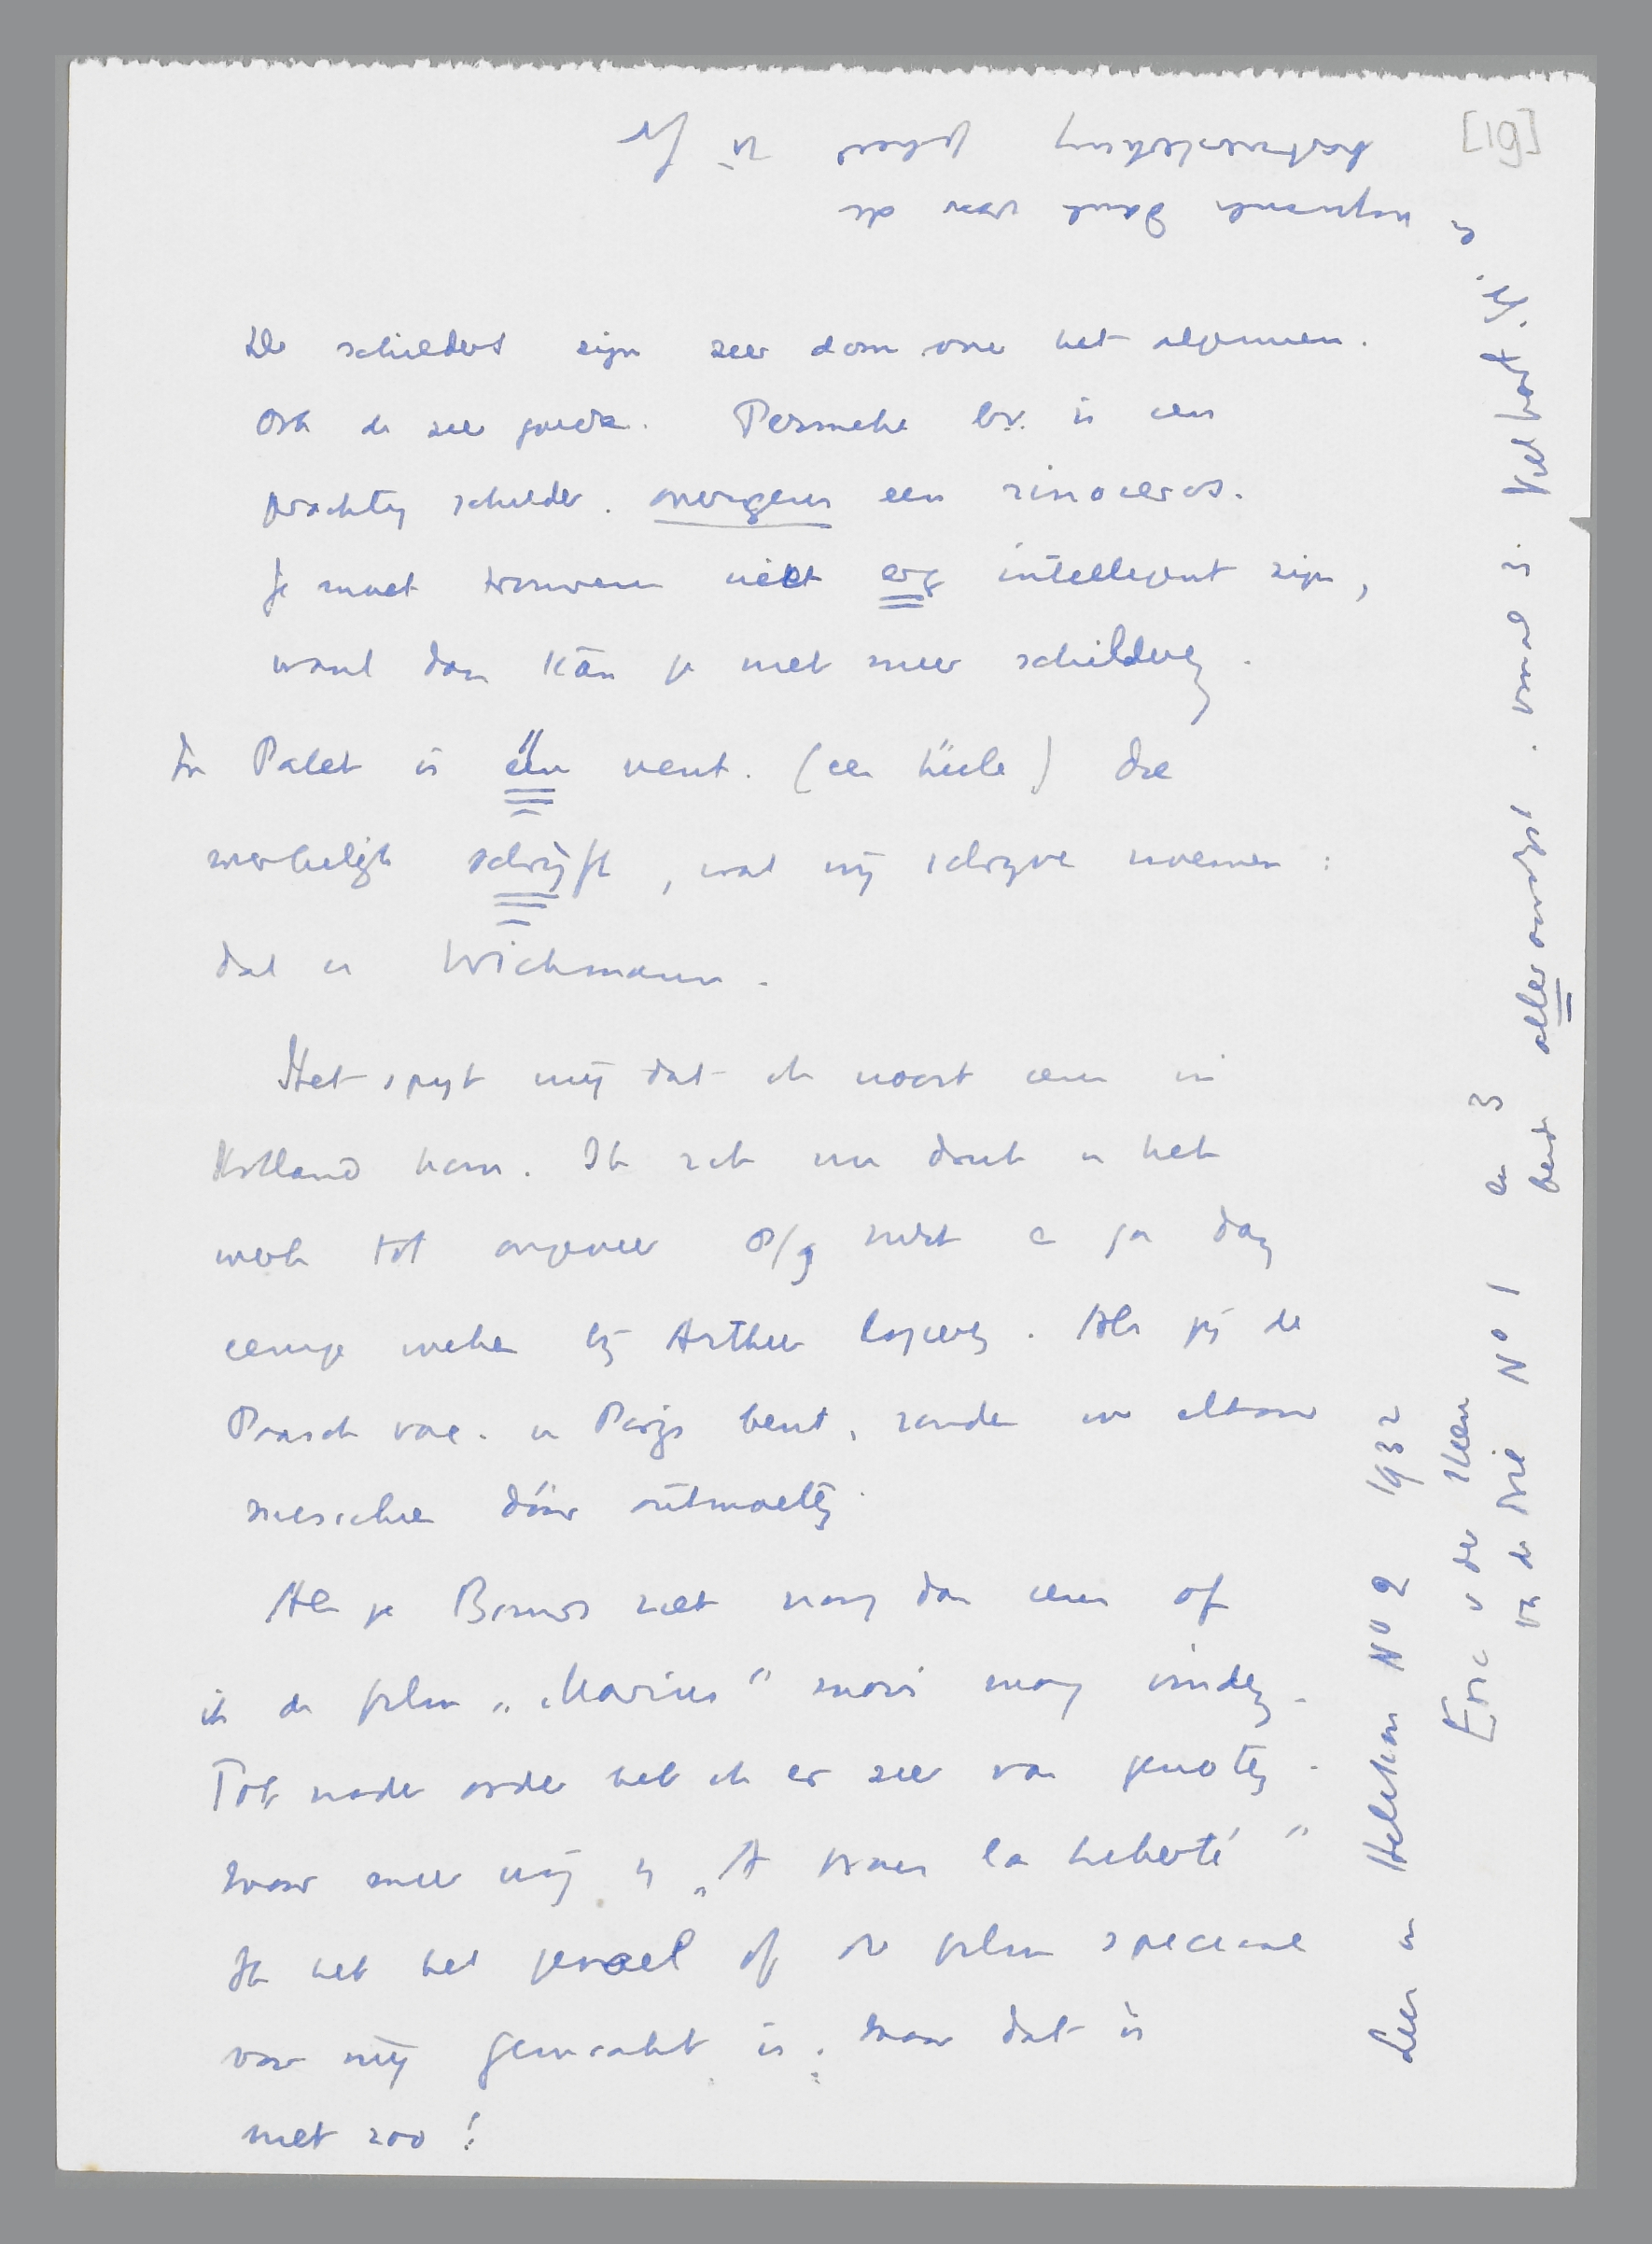 [19]
De schilders zijn zeer dom over het algemeen.
Ook de zeer goede. Permeke bv. is een
prachtig schilder. overigens een rinoceros.
Je moet trouwens niet erg intelligent zijn,
want dan kan je niet meer schilderen.
In Palet is één vent. (een heele) die
werkelijk schrijft, wat wij schrijve noemen:
dat is Wichmann.
Het spijt mij dat ik nooit eens in
Holland kom. Ik zit nu druk in het
werk tot ongeveer 8/9 en ga dan
eenige weken bij Arthur logeeren. Als jij de
Paasch vac. in Parijs bent, zouden we elkaar
misschien dáár ontmoeten.
Als je ziet vraag dan eens of
ik de film „Marius" mooi mag vinden.
Tot nader order heb ik er zeer van genoten.
Maar meer nog van „A nous la Liberté"
Ik heb het gevoel of die film speciaal
voor mij gemaakt is; maar dat is
niet zoo!
Lees in Helikon No 2 1932
Eric v der Steen
van de Drie No 1 en 3
beide alleronwijst. vooral 3. Veel hart. gr.
en nogmaals dank voor de
je fr